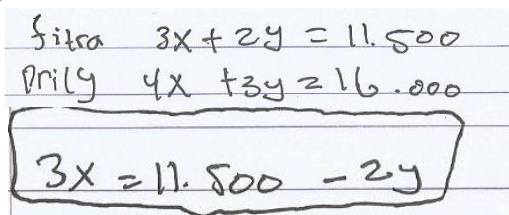 fitra 3x + 2y = 11.500
Prily 4x + 3y = 16.000
3x = 11.500 - 2y